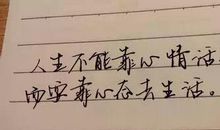 人生不能靠心情活
而要靠心态去生活。